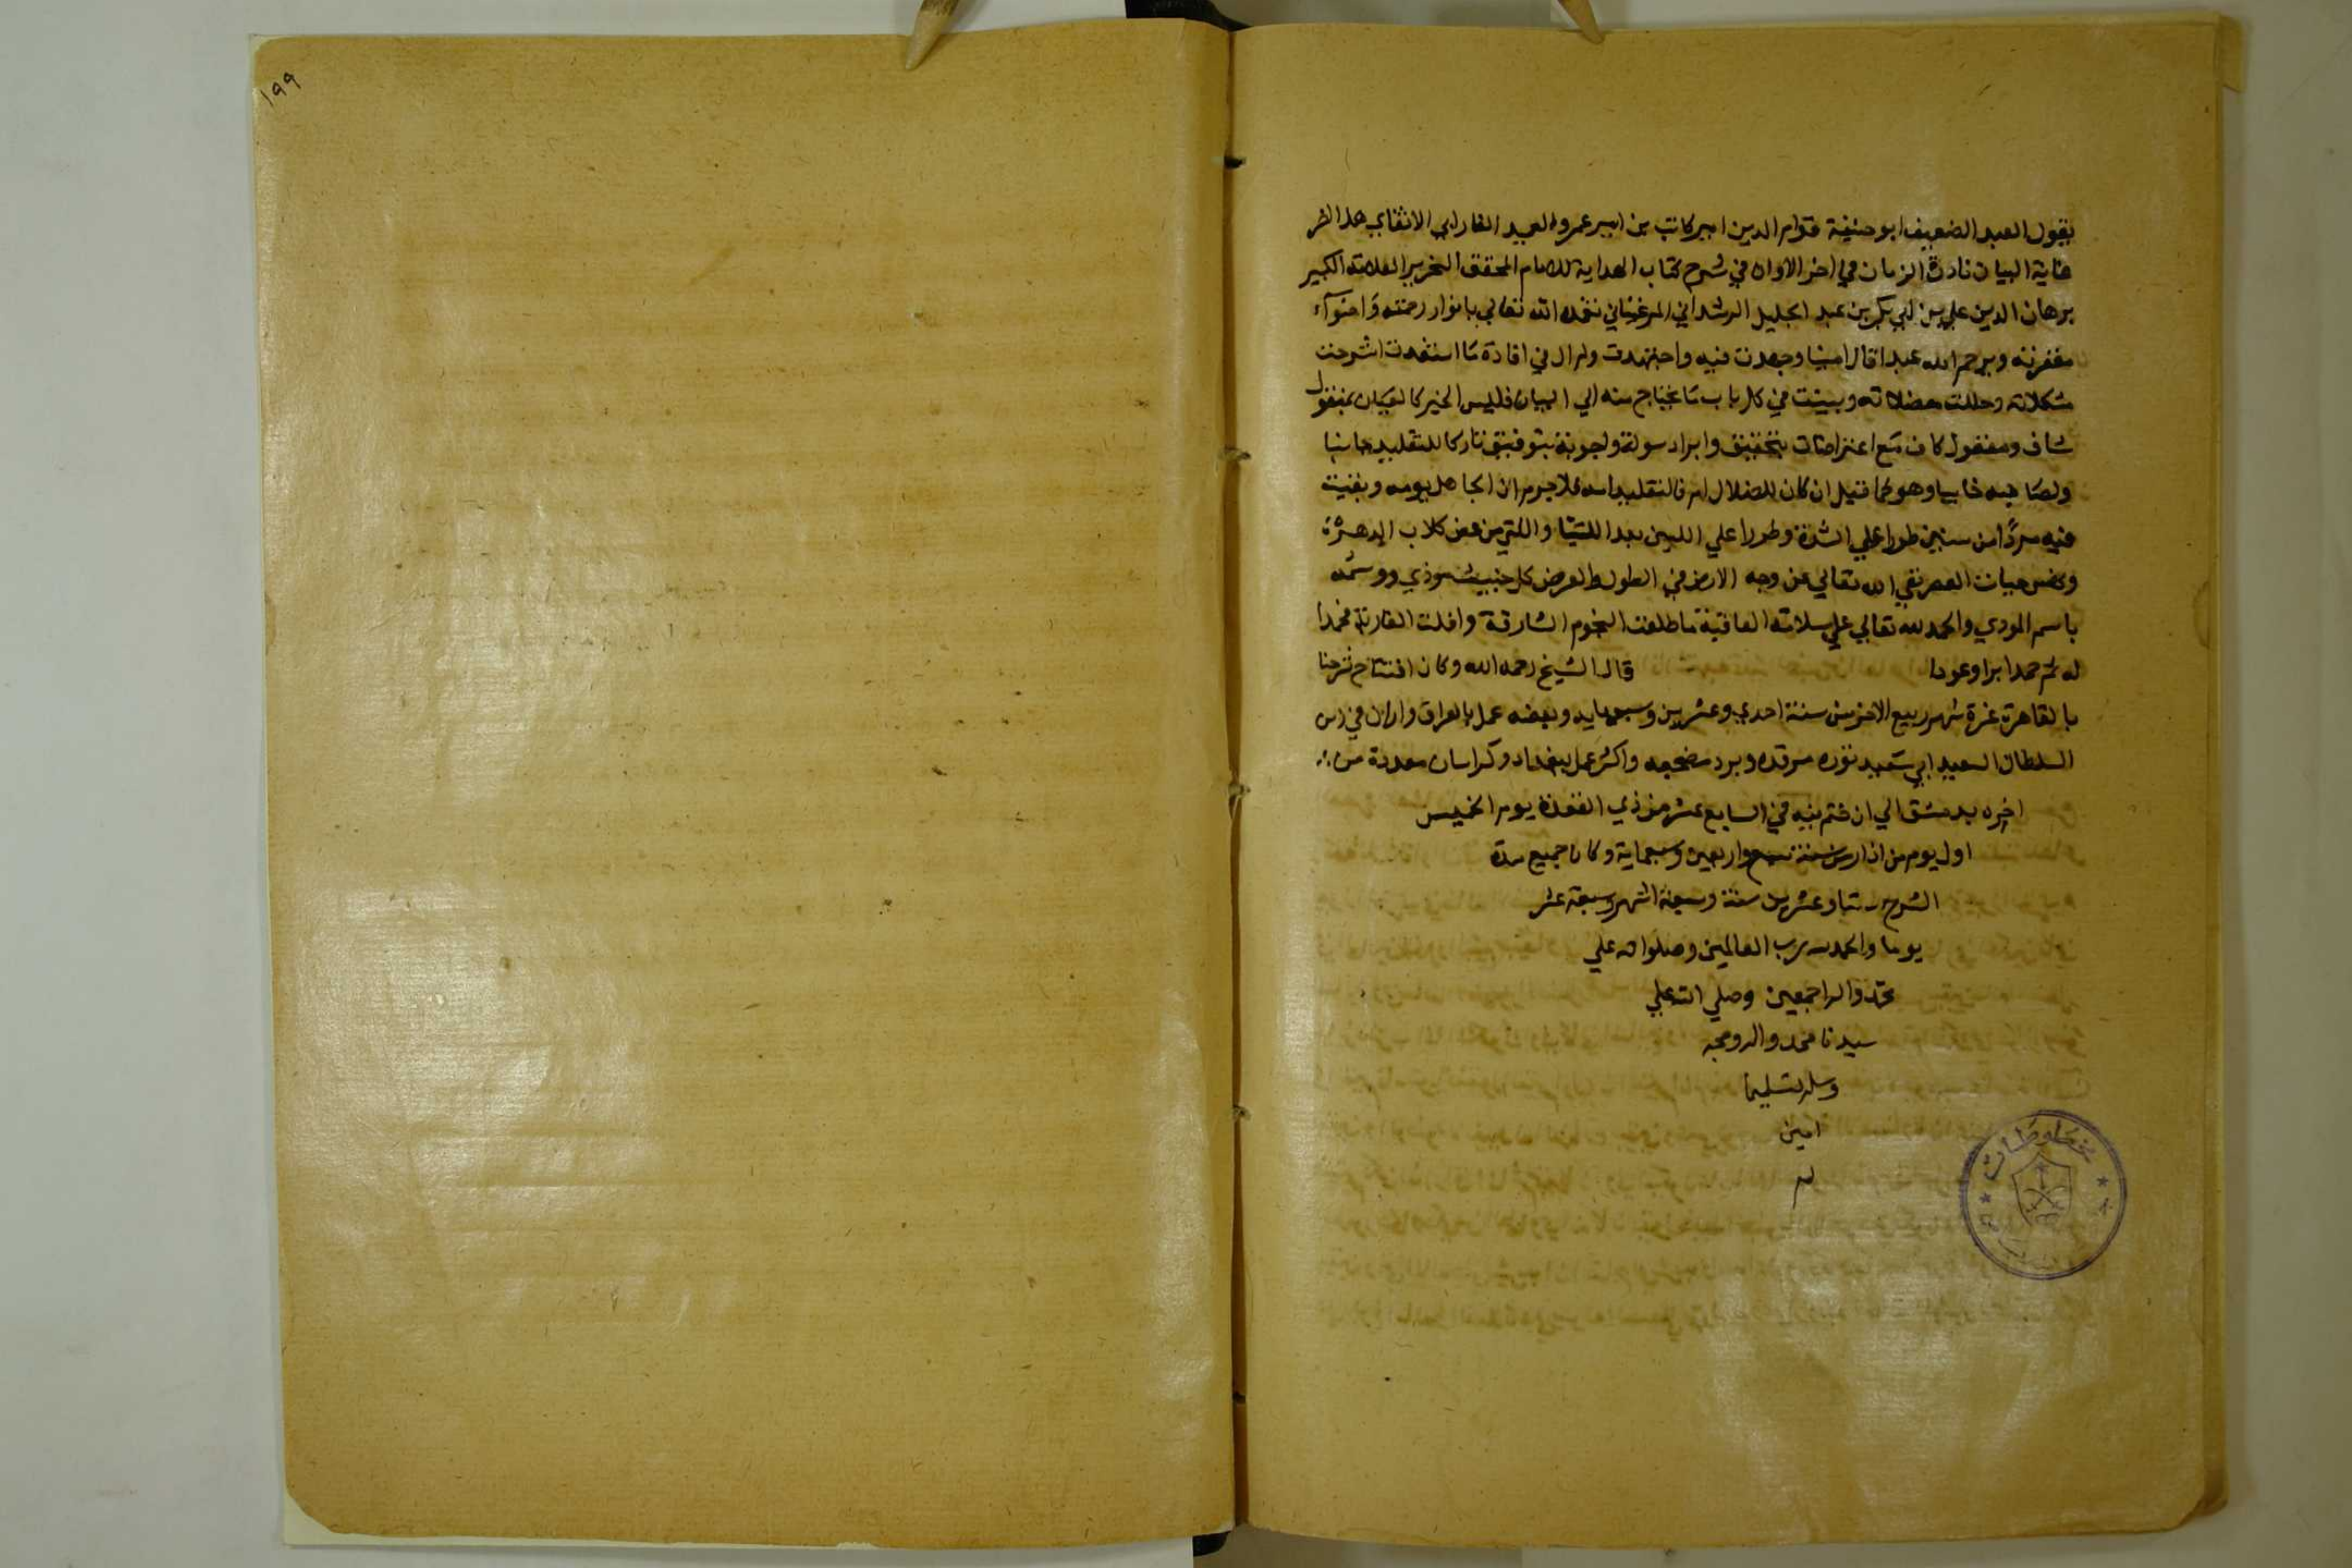 ١٩٩
يقول العبد الضعيف ابو حنيفة قوام الدين امير كاتب بن امير عمرو العميد الفارابي الاتقاني هذا اخر
غاية البيان نادرة الزمان في اخر الاوان في شرح كتاب الهداية للامام المحقق النحرير العلامة الكبير
برهان الدين علي بن ابي بكر بن عبد الجليل الرشداني المرغيناني تغمده الله تعالى بانوار رحمته واضواء
مغفرته ويرحم الله عبدا قال امينا وجهدت فيه واجتهدت ولم ال في افادة ما استفدت اشرحت
مشكلاته وحللت معضلاته وبينت في كل باب ما يحتاج منه الي البيان فليس الخبر كالعيان بمنقول
شاف ومعقول كاف مع اعتراضات بتحقيق وايراد سولة واجوبة بتوفيق تاركا للتقليد جانبا
ولصاحبه خايبا وهو كما قيل ان كان للضلال ام فالتقليد امه فلا جرم ان الجاهل يومه وبقيت
فيه مردا من سنين طورا علي الشدة وطورا علي اللين بعد اللتيا واللتي من عض كلاب الدهر
حيات العصر نفي الله تعالي عن وجه الارض في الطول والعرض كل خبيث موذي ووسمه
باسم المودي والحمد لله تعالي علي سلامة العاقبة ما طلعت النجوم الشارقة وافلت الغاربة فحمدا
له ثم حمدا ابدا وعودا قال الشيخ رحمه الله وكان افتتاح شرحنا
بالقاهرة غرة شهر ربيع الاخر من سنة احدي وعشرين وسبعماية وبعضه عمل بالعراق واران في زمن
السلطان السعيد ابي سعيد نوره مرقده وبرد مضجعه واكثر عمل ببغداد وكراسان معددة من
اخره بدمشق الي ان ختم فيه في السابع عشر من ذي القعدة يوم الخميس
اول يوم من اذار من سنة سبع واربعين وسبعماية وكان جميع مدة
الشرح ستا وعشرين سنة وسبعة اشهر وسبعة عشر
يوما والحمد لله رب العالمين وصلواته علي
محمد واله اجمعين وصلي الله علي
سيدنا محمد واله وصحبه
وسلم تسليما
امين
م
مخطوطات